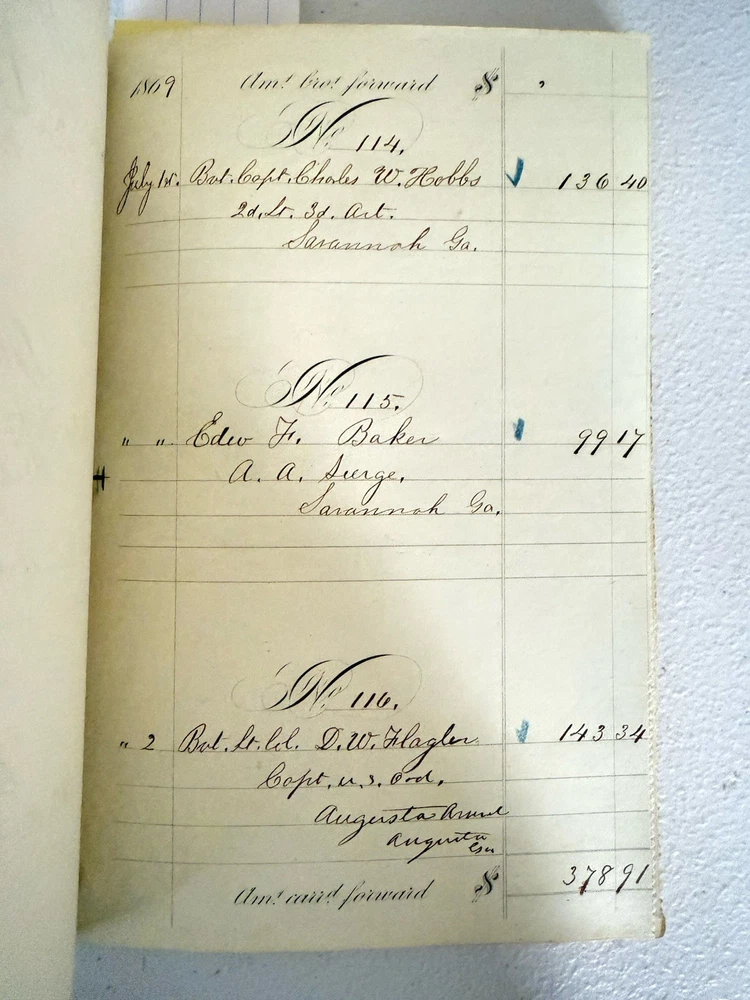 1869 Amt. brot. forward $ "
No. 114.
July 1st. Bvt. Capt. Charles W. Hobbs 136 40
2d. Lt. 3d. Art.
Savannah Ga.
No. 115.
" " Edw F. Baker 99 17
A. A. Surge.
Savannah Ga.
No. 116.
" 2 Bvt. Lt. Col. D. W. Flagler 143 34
Capt. U. S. Ord.
Augusta Arsenal
Augusta
Ga
Amt. carrd. forward $ 378 91